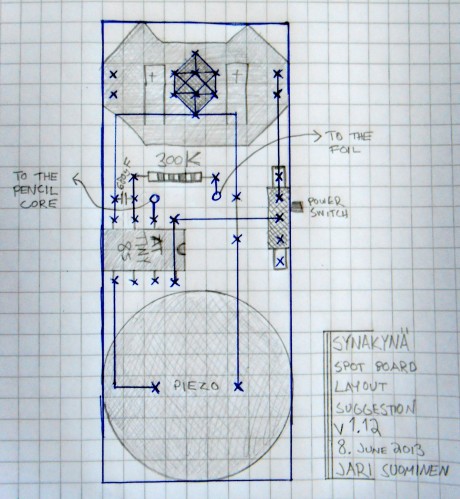 +
+
300K
TO THE
FOIL
TO THE
PENCIL
CORE
POWER
SWITCH
AT
TINY
85
PIEZO
SYNAKYNÄ
SPOT BOARD
LAYOUT
SUGGESTION
V 1.12
8. JUNE 2013
JARI SUOMINEN